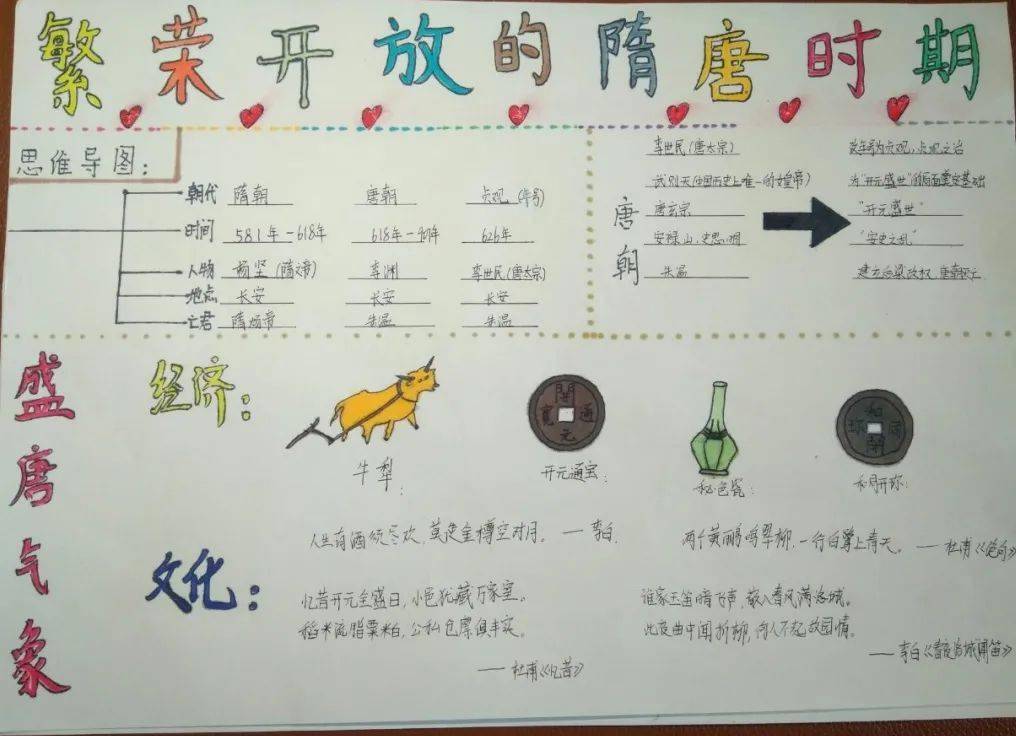 繁荣开放的隋唐时期
思维导图:
朝代 隋朝 唐朝 贞观(年号)
时间 581年-618年 618年-907年 626年
人物 杨坚(隋文帝) 李渊 李世民(唐太宗)
地点 长安 长安 长安
亡君 隋炀帝 朱温 朱温
唐朝
李世民(唐太宗) 改年号为贞观,贞观之治
武则天(中国历史上唯一的女皇帝) 为"开元盛世"的局面奠定基础
唐玄宗 "开元盛世"
安禄山、史思明 "安史之乱"
朱温 建立后梁政权,唐朝灭亡
盛唐气象
经济:
牛犁: 开元通宝: 秘色瓷: 和同开珎:
開元通寶
和同開珎
文化:
人生得意须尽欢,莫使金樽空对月。——李白
两个黄鹂鸣翠柳,一行白鹭上青天。——杜甫《绝句》
忆昔开元全盛日,小邑犹藏万家室。
稻米流脂粟米白,公私仓廪俱丰实。
——杜甫《忆昔》
谁家玉笛暗飞声,散入春风满洛城。
此夜曲中闻折柳,何人不起故园情。
——李白《春夜洛城闻笛》